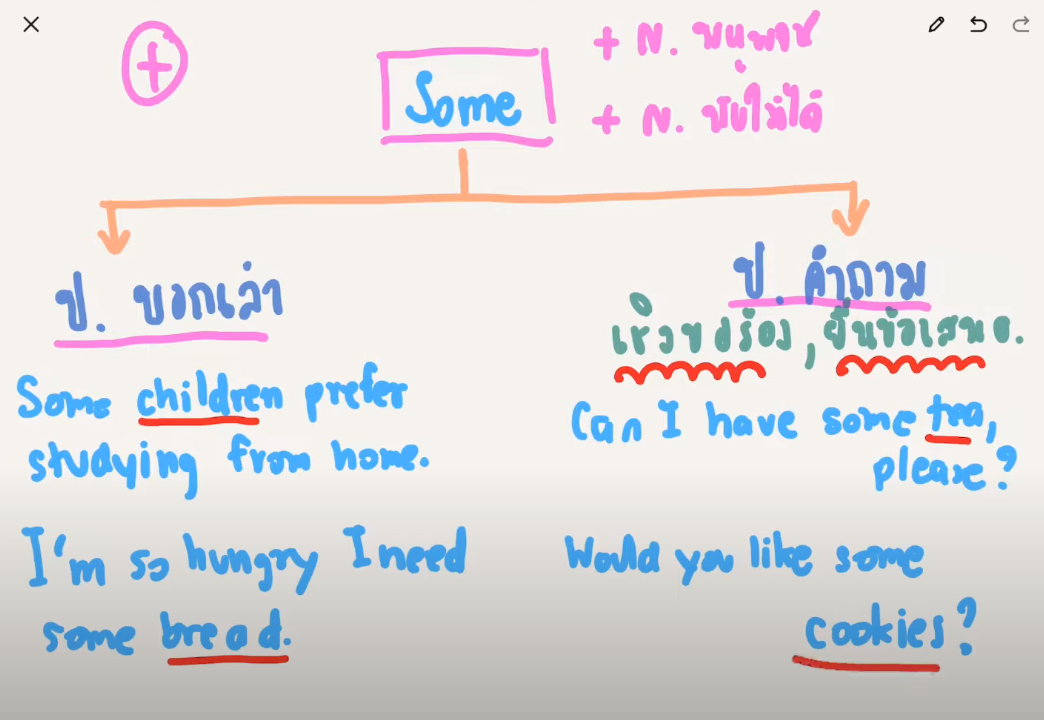 +
Some
+ N. พหูพจน์
+ N. นับไม่ได้
ป. บอกเล่า
Some children prefer
studying from home.
I'm so hungry I need
some bread.
ป. คำถาม
เชิงขอร้อง, ยื่นข้อเสนอ.
Can I have some tea,
please?
Would you like some
cookies?